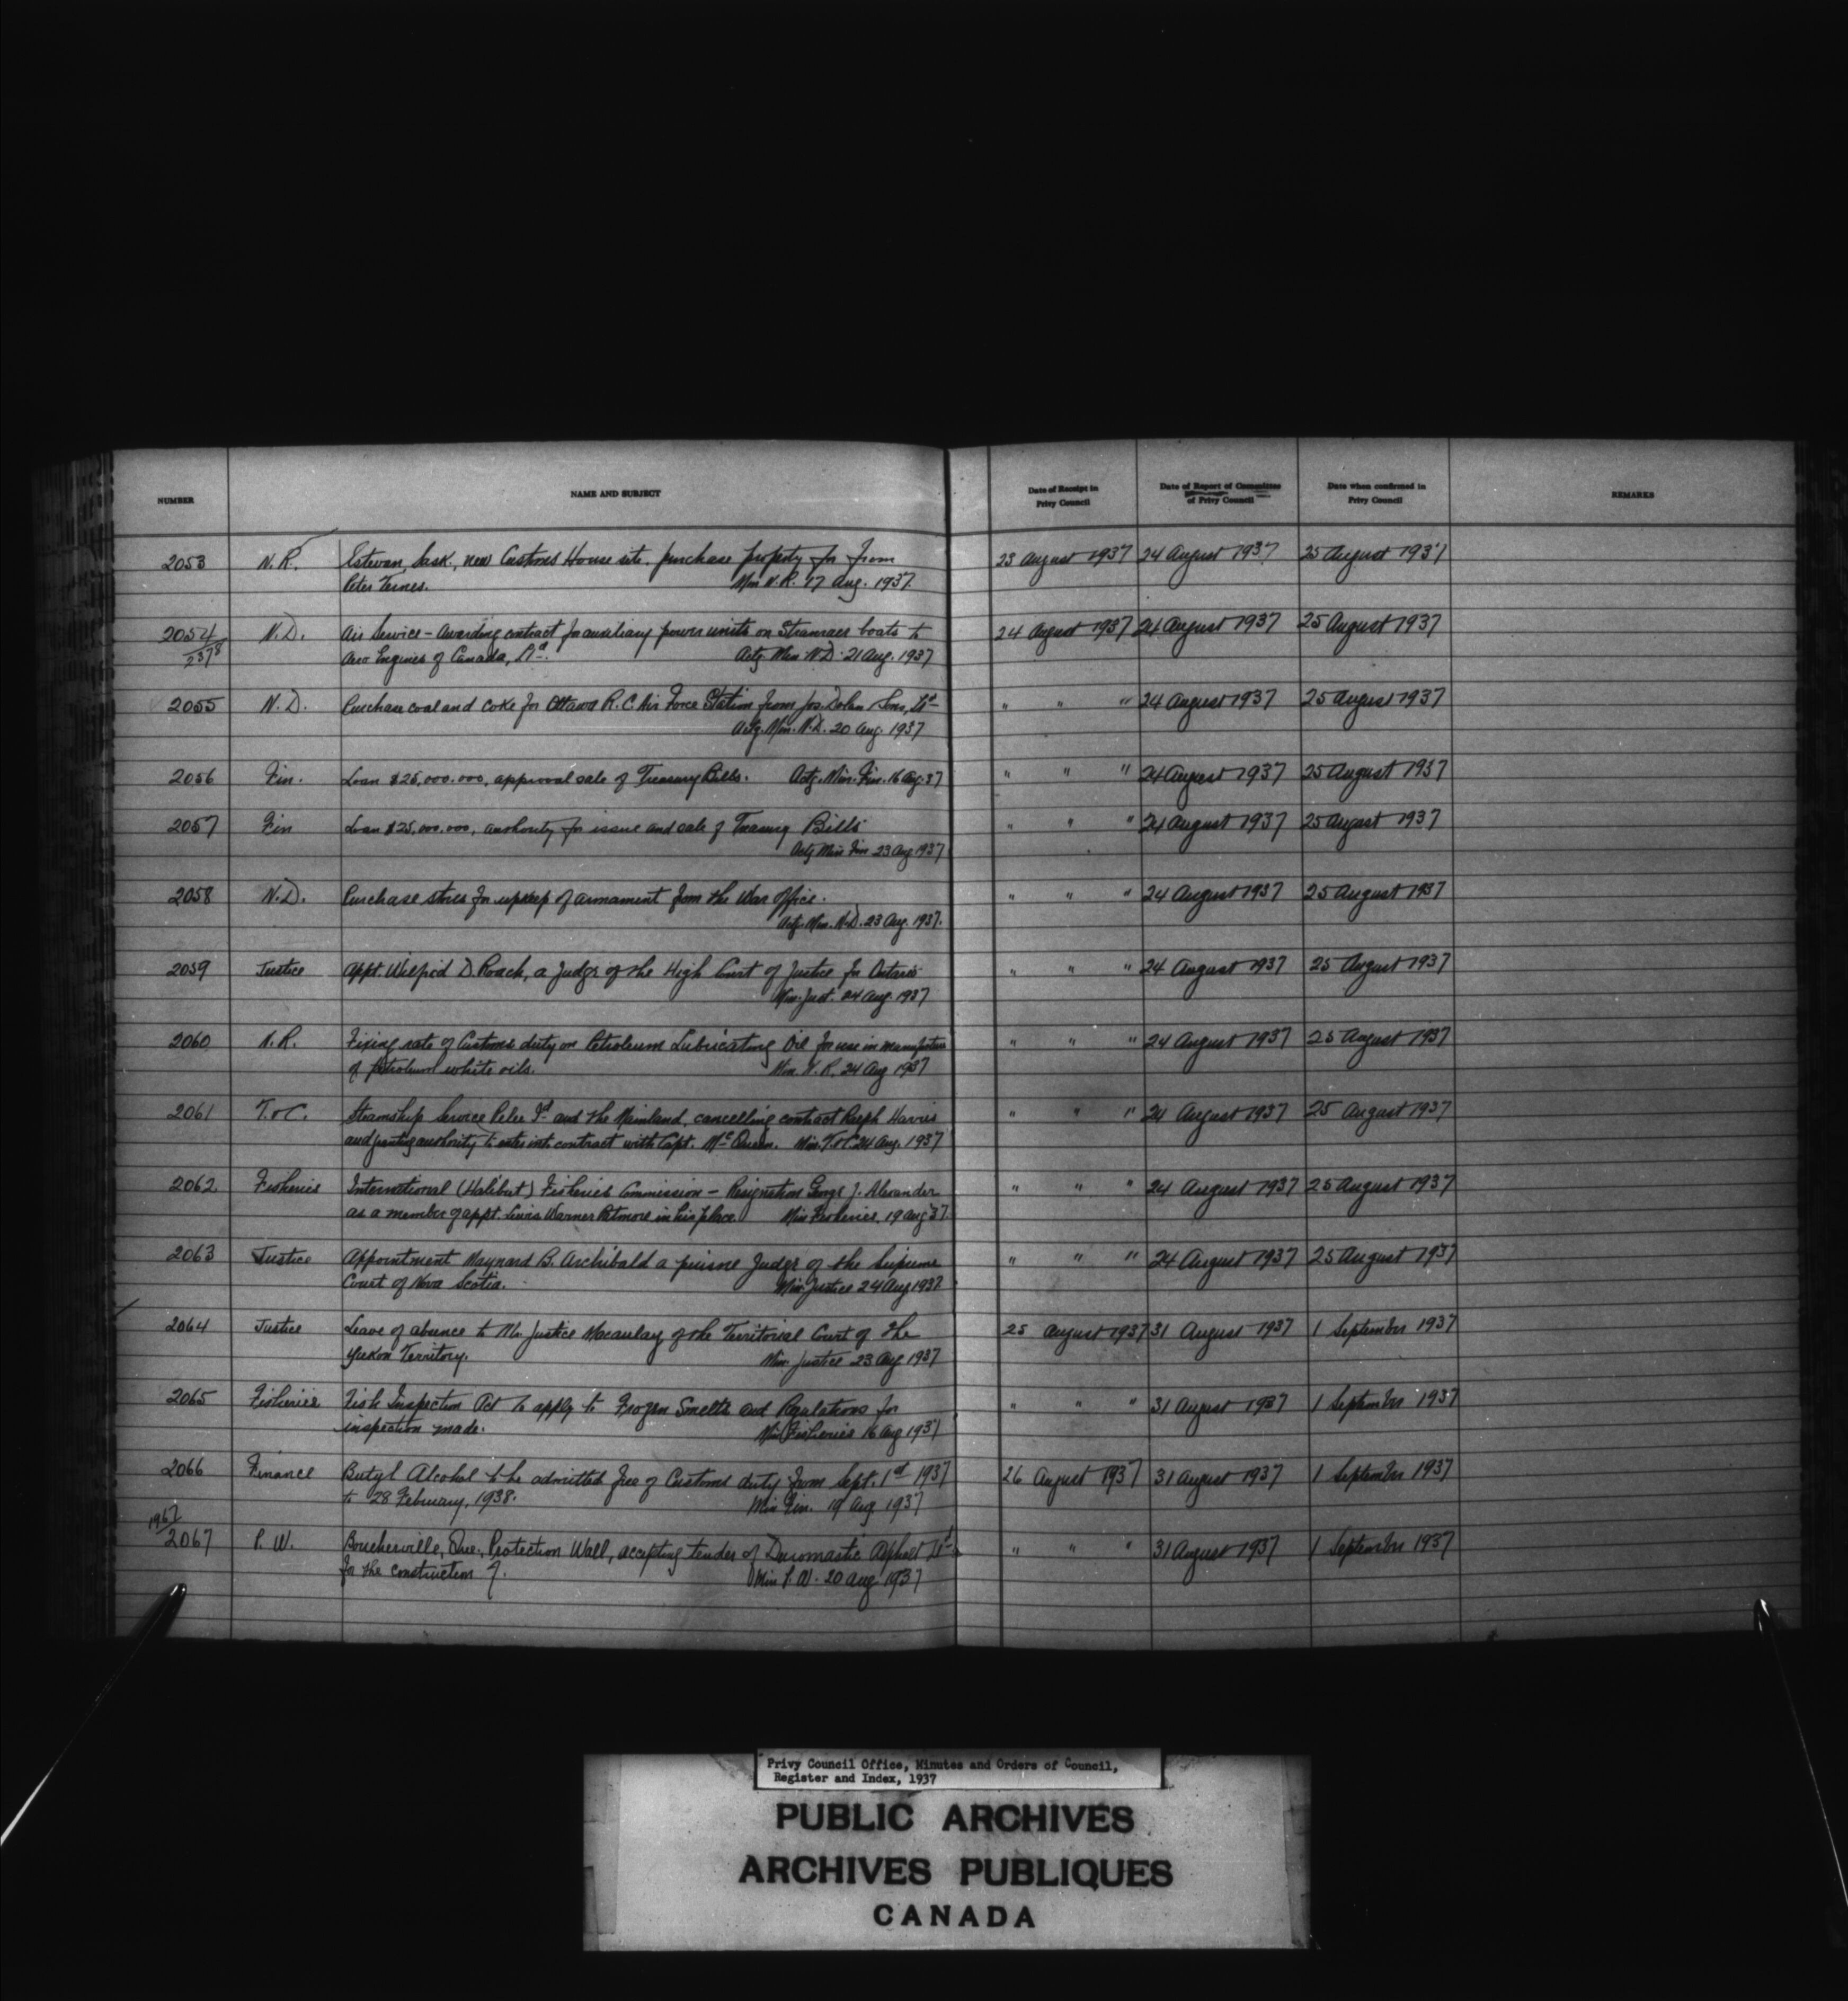 NUMBER NAME AND SUBJECT Date of Receipt in Privy Council Date of Report of Committee of Privy Council Date when confirmed in Privy Council REMARKS
2053 N.R. Estevan, Sask., new Customs House site, purchase property for from 23 August 1937 24 August 1937 25 August 1937
Peter Min N.R. 17 Aug. 1937
2054 N.D. Air Service - Awarding contract for auxiliary power units on Stranraer boats to 24 August 1937 24 August 1937 25 August 1937
2378 Aero Engines of Canada, Ltd. Actg Min N.D. 21 Aug. 1937
2055 N.D. Purchase coal and coke for Ottawa R.C. Air Force Station from Jos. Dolan Sons, Ltd " " " 24 August 1937 25 August 1937
Actg. Min. N.D. 20 Aug. 1937
2056 Fin. Loan $25,000.000, approval sale of Treasury Bills. Actg. Min. Fin. 16 Aug. 37 " " " 24 August 1937 25 August 1937
2057 Fin Loan $25,000.000, authority for issue and sale of Treasury Bills " " " 24 August 1937 25 August 1937
Actg Min Fin 23 Aug 1937
2058 N.D. Purchase stores for upkeep of armament from the War Office. " " " 24 August 1937 25 August 1937
Actg. Min. N.D. 23 Aug. 1937.
2059 Justice Appt. Wilfrid D. Roach, a Judge of the High Court of Justice for Ontario " " " 24 August 1937 25 August 1937
Min. Just. 24 Aug. 1937
2060 N.R. Fixing rate of Customs duty on Petroleum Lubricating Oil for use in manufacture " " " 24 August 1937 25 August 1937
of petroleum white oils. Min. N.R. 24 Aug 1937
2061 T. & C. Steamship Service Pelee Id and the Mainland, cancelling contract Ralph Harris " " " 24 August 1937 25 August 1937
and granting authority to enter into contract with Capt. McQueen. Min. T. & C. 24 Aug. 1937
2062 Fisheries International (Halibut) Fisheries Commission - Resignation George J. Alexander " " " 24 August 1937 25 August 1937
as a member of appt. Lewis Warner Patmore in his place Min Fisheries, 19 Aug 37.
2063 Justice Appointment Maynard B. Archibald a puisne Judge of the Supreme " " " 24 August 1937 25 August 1937
Court of Nova Scotia. Min. Justice 24 Aug 1937
2064 Justice Leave of absence to Mr. Justice Macaulay of the Territorial Court of the 25 August 1937 31 August 1937 1 September 1937
Yukon Territory. Min. Justice 23 Aug 1937
2065 Fisheries Fish Inspection Act to apply to Frozen Smelts and Regulations for " " " 31 August 1937 1 September 1937
inspection made. Min Fisheries 16 Aug 1937
2066 Finance Butyl Alcohol to be admitted free of Customs duty from Sept. 1st 1937 26 August 1937 31 August 1937 1 September 1937
to 28 February, 1938. Min Fin. 19 Aug. 1937
1967
2067 P.W. Boucherville, Que., Protection Wall, accepting tender of Duromastic Asphalt Ltd " " " 31 August 1937 1 September 1937
for the construction of. Min P.W. 20 Aug 1937
Privy Council Office, Minutes and Orders of Council,
Register and Index, 1937
PUBLIC ARCHIVES
ARCHIVES PUBLIQUES
CANADA